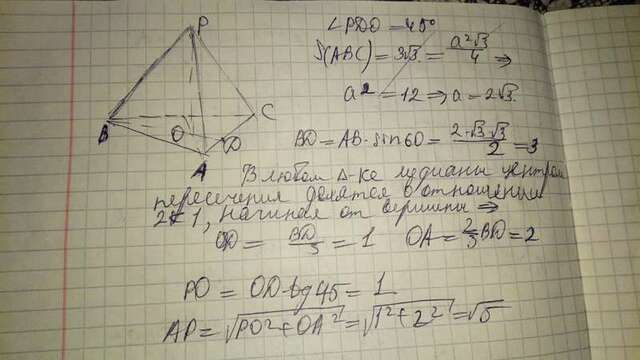 P
B
O
A
D
C
∠PDO = 45°
S(ABC) = 3√3 = a²√3/4 ⇒
a² = 12 ⇒ a = 2√3.
BD = AB · sin60 = 2·√3·√3/2 = 3
В любом Δ-ке медианы центром
пересечения делятся в отношении
2 к 1, начиная от вершины ⇒
OD = BD/3 = 1 OA = 2/3 BD = 2
PO = OD·tg45 = 1
AP = √PO²+OA² = √1²+2² = √5